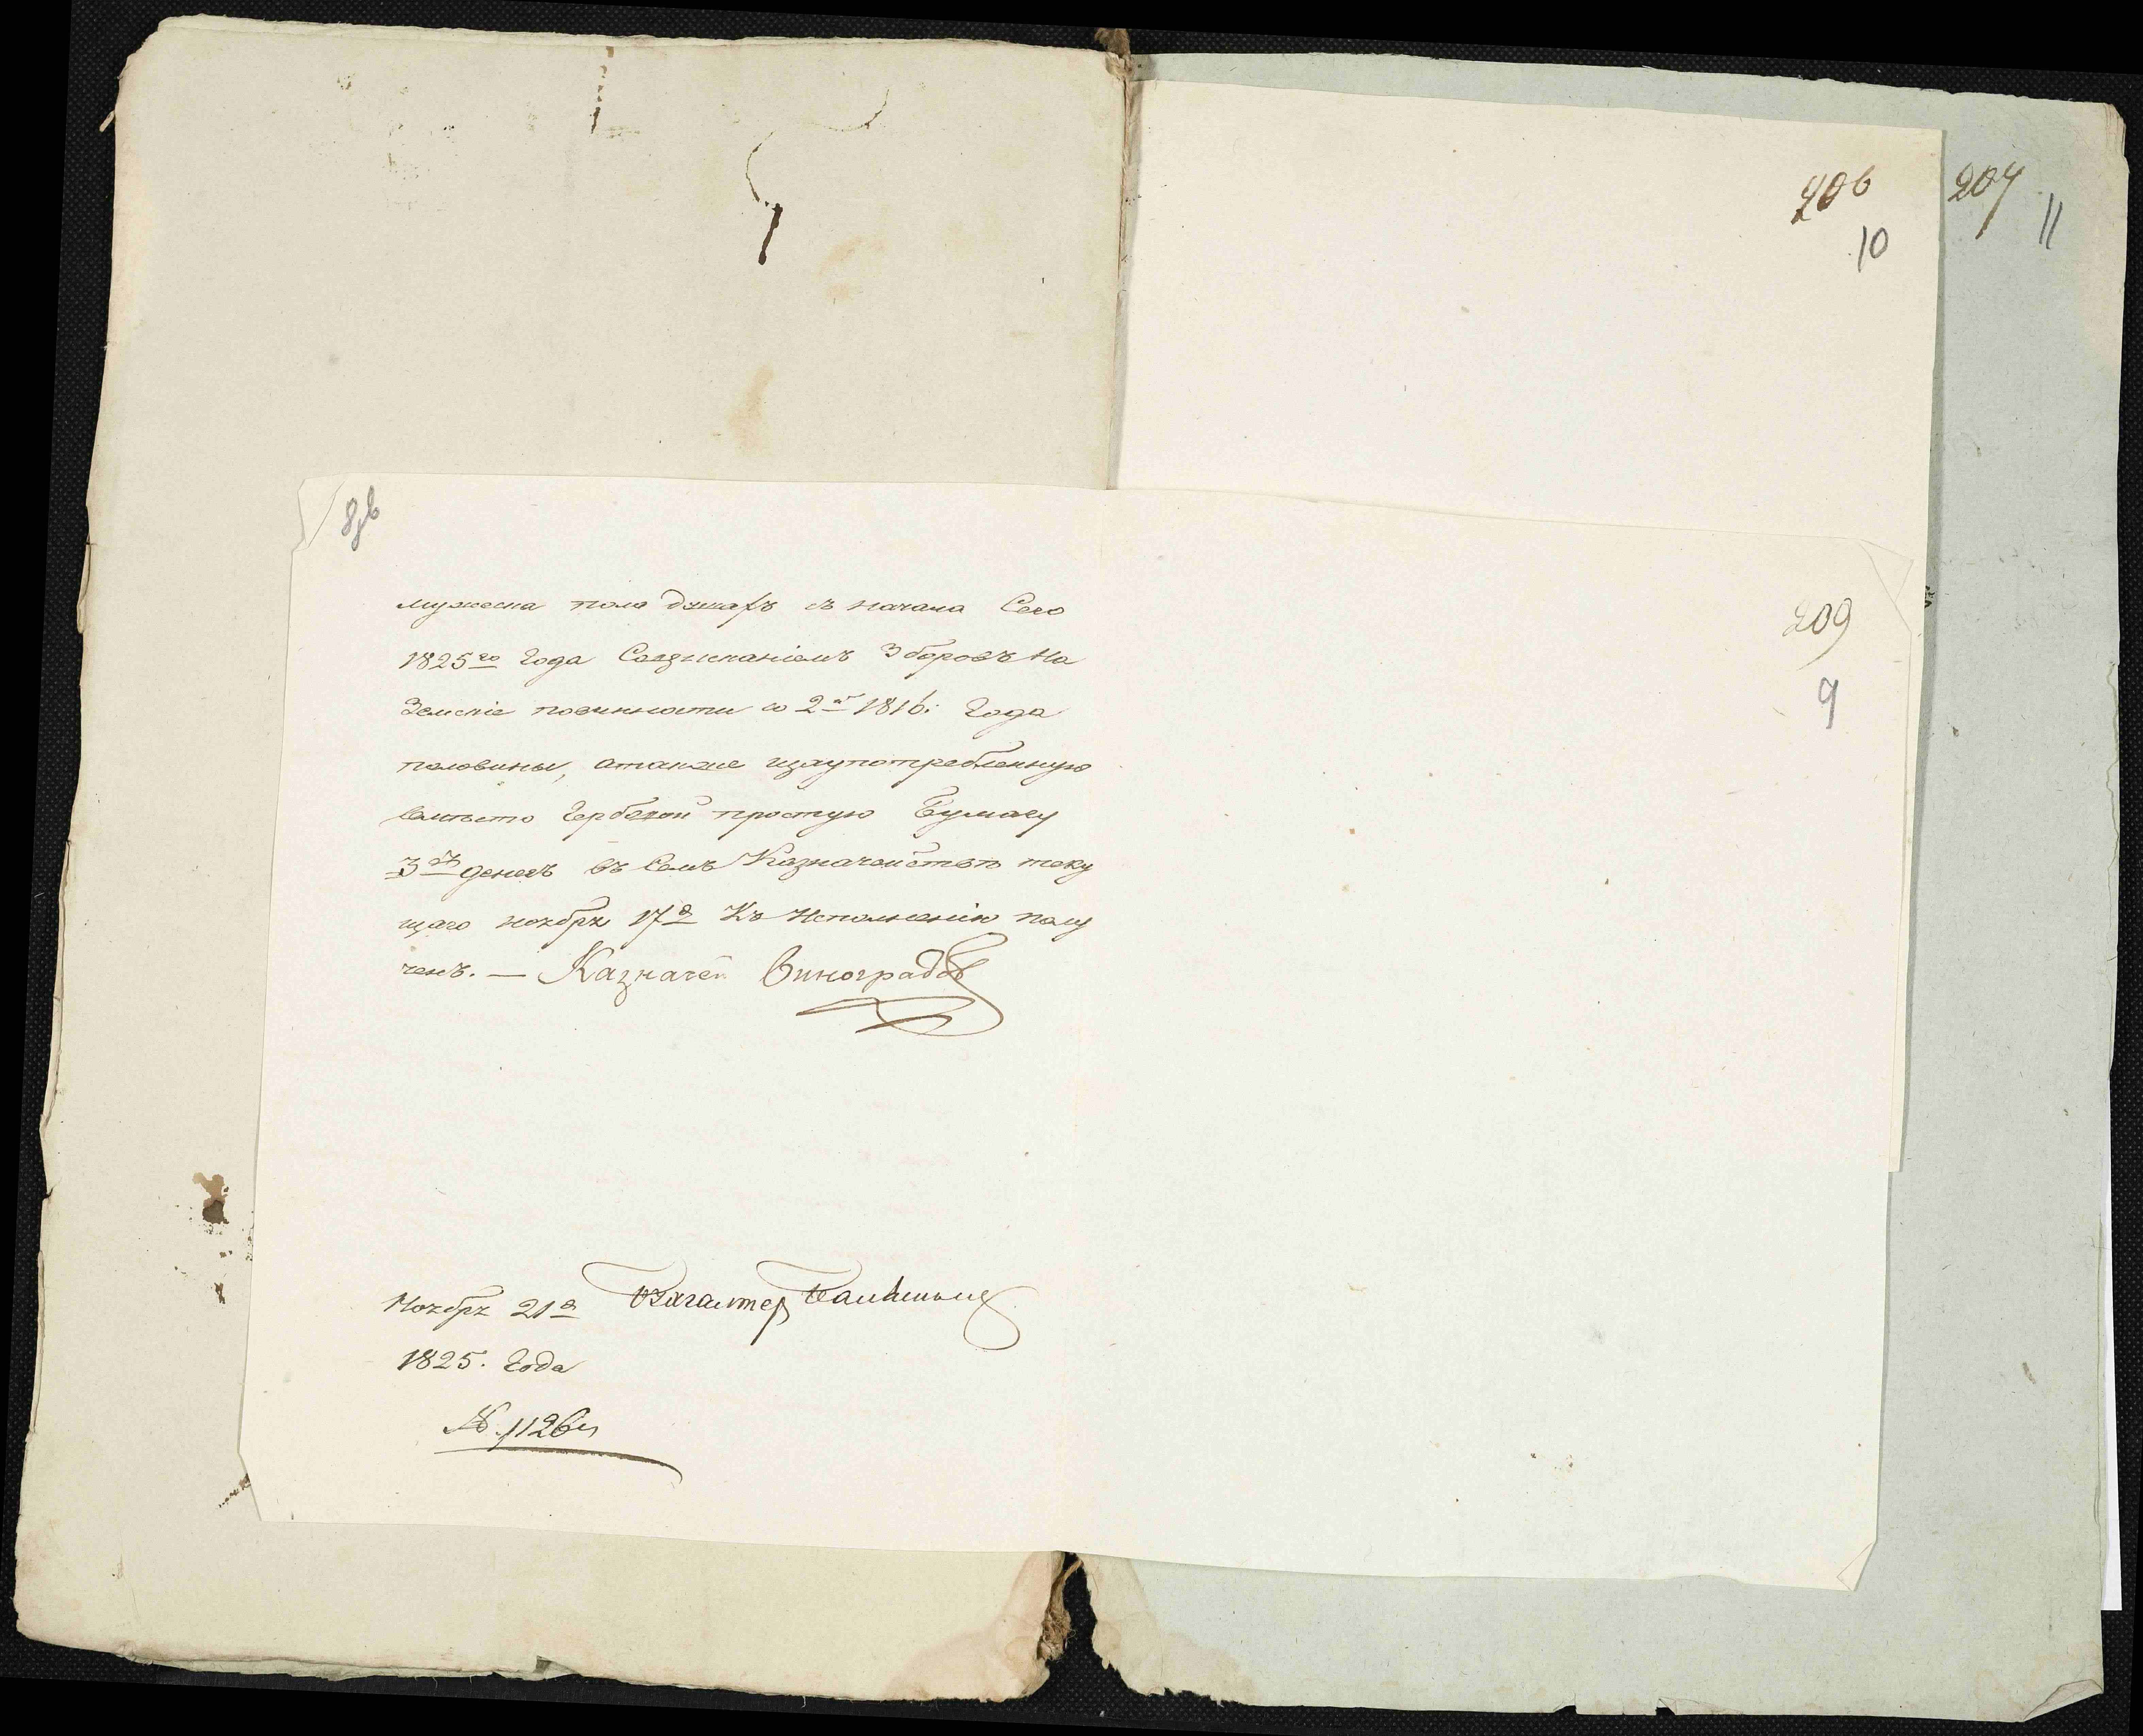 206
10
207
11
8об
209
9
мужеска пола душахъ съ начала Сего
1825го Года Совзысканіемъ Зборовъ На
Земскіе повинности со 2й 1816: Года
половины, атакже изаупотребленную
вместо Гербовой простую Бумагу
денегъ въ Семъ Казначействѣ теку
щаго ноября 17д Къ Исполненію полу
ченъ. — Казначей Виноградов
Бухгалтер
Ноября 21д
1825. Года
№. 1126